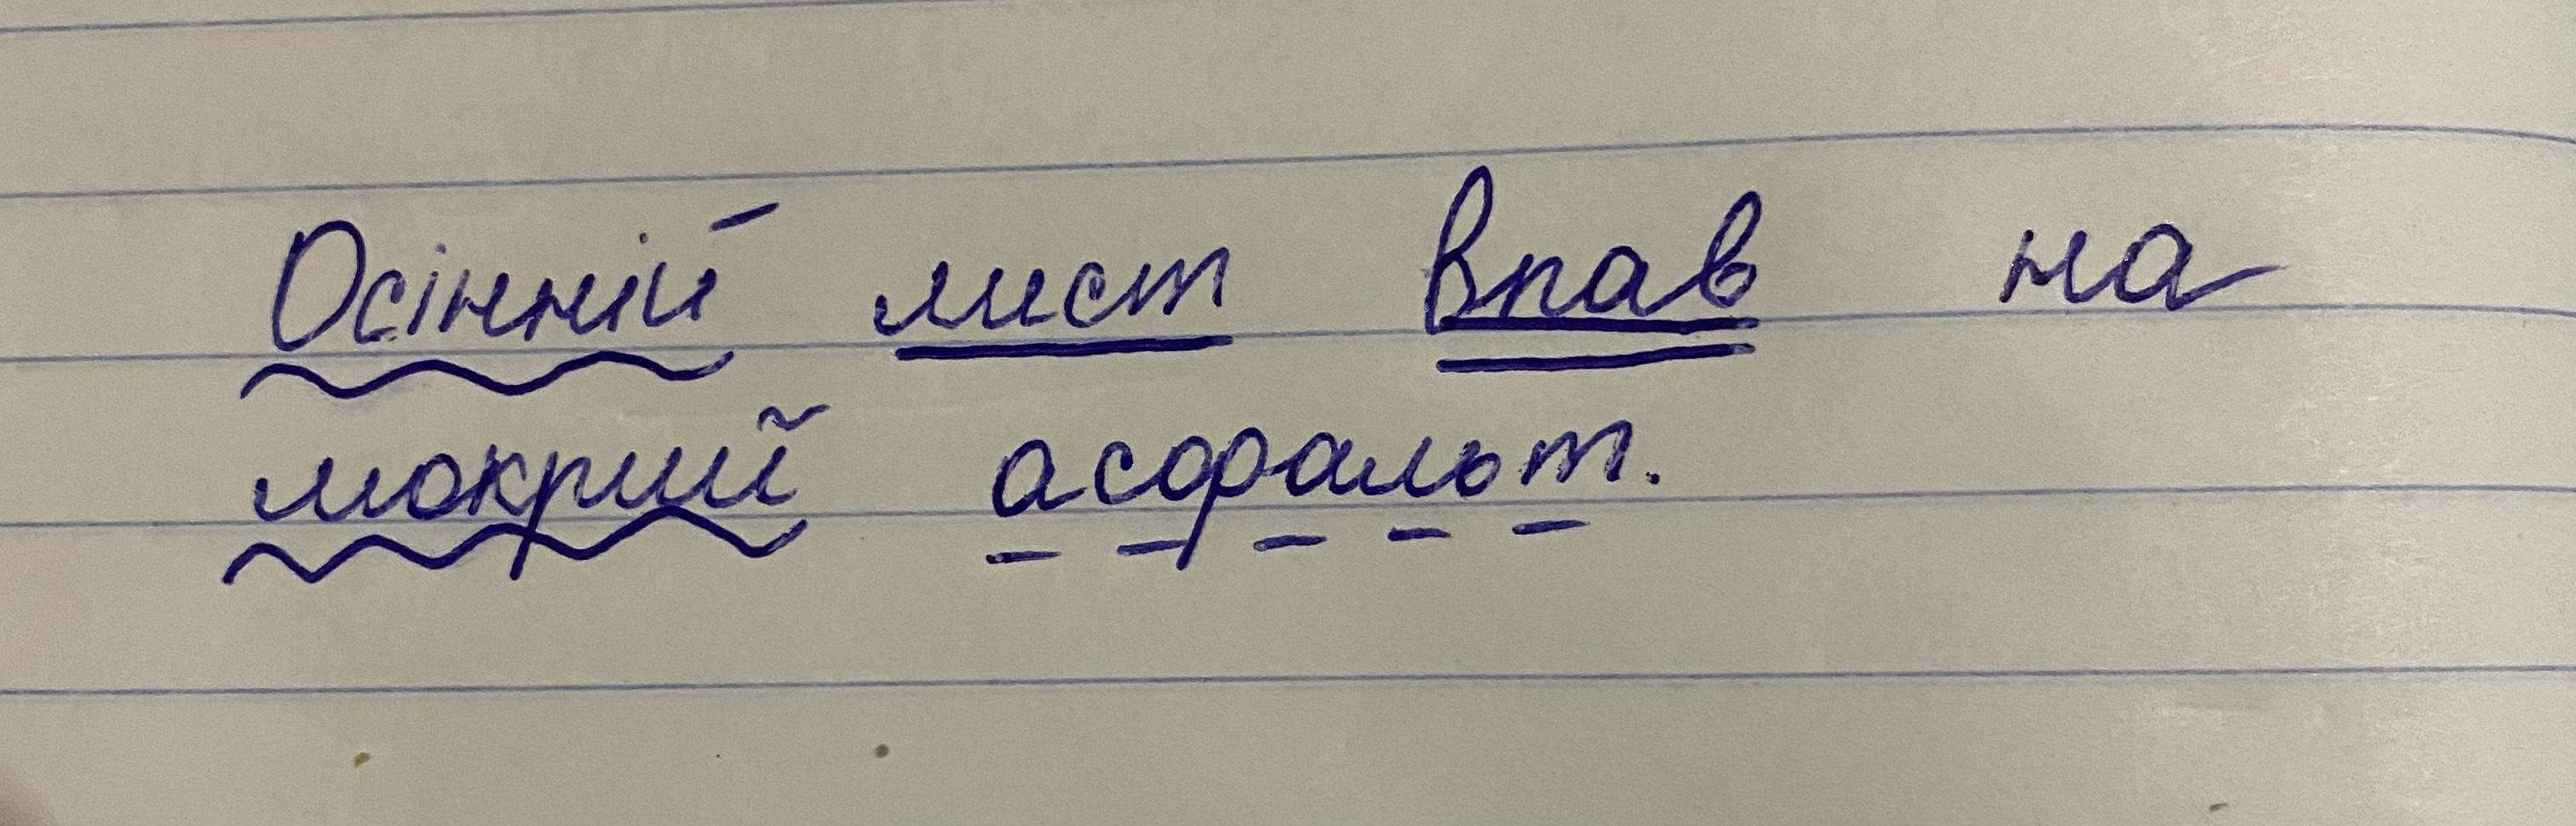 Осінній лист впав на
мокрий асфальт.